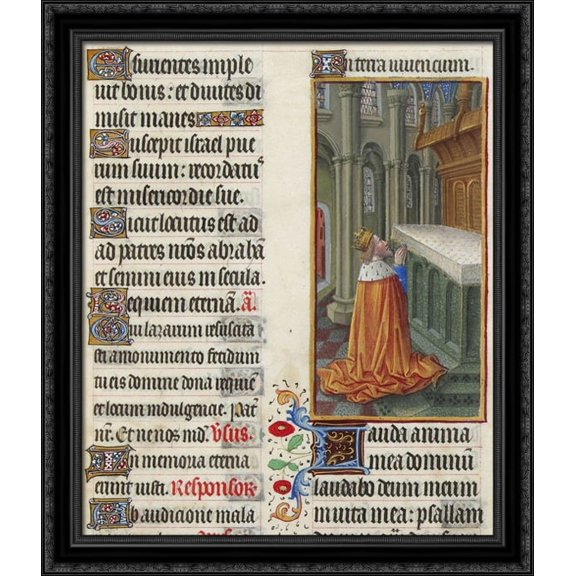 Esurientes imple
vit bonis: et divites di
misit inanes
Suscepit israel pue
rum suum: recordatus
est misericordie sue.
Sicut locutus est ad
ad patres nros abrahã
et semini eius in secula.
Requiem eternã. a.
Qui lazarum resuscita
sti a monumento fetidum
tu eis domine dona requiẽ
et locum indulgencie. Pat
nr. Et ne nos ind. Vsus.
In memoria eterna
erunt iusti. Responsor
Ab audicione mala
In terra vivencium.
Lauda anima
mea dominũ
laudabo deum meum
in vita mea: psallam